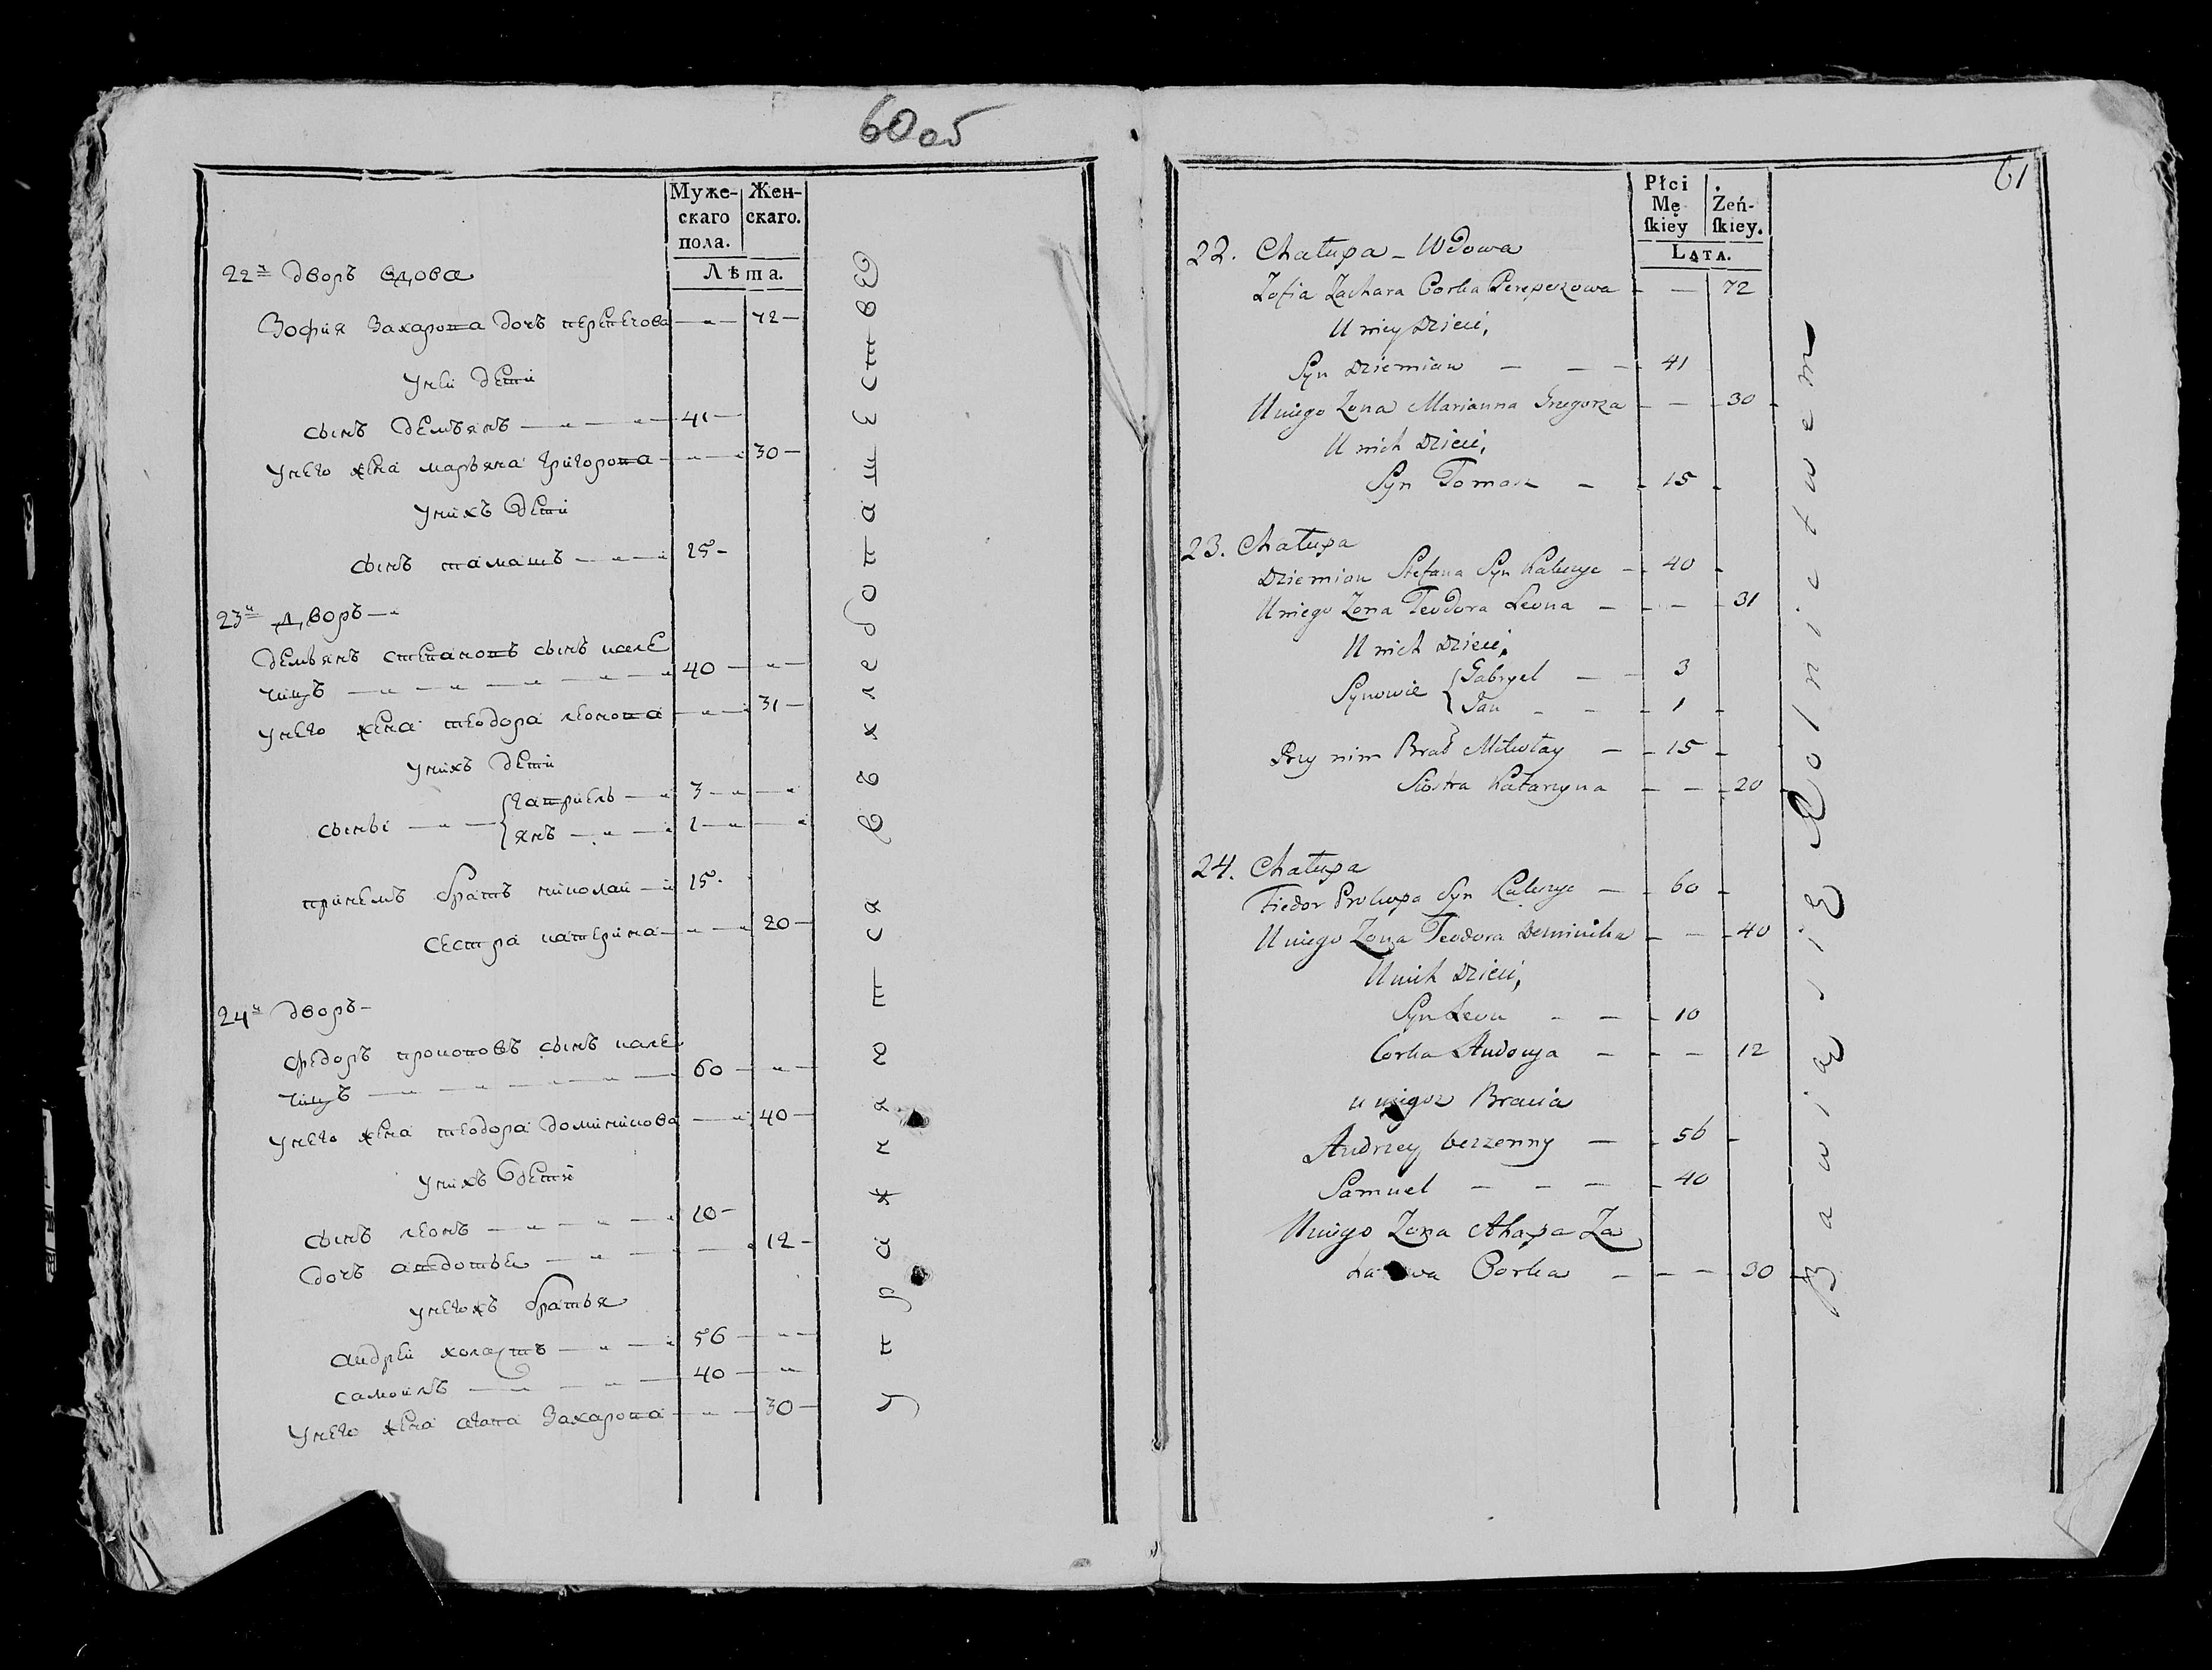 60 об
Муже-
скаго
пола.
Жен-
скаго.
Лѣта.
22й дворъ вдова
Зофия Захарова дочъ перепечова — 72
Унеи дети
сынъ демъянъ — 41
Унего жена маръяна григорова — 30
Унихъ дети
сынъ тамашъ — 15
23й дворъ —
Демъянъ степановъ сынъ кале
чицъ — 40
Унего жена теодора леонова — 31
Унихъ дети
сыны { гавриель — 3
янъ — 1
принемъ братъ николаи — 15
сестра катерина — 20
24й дворъ —
федоръ прокоповъ сынъ кале
чицъ — 60
Унего жена теодора доминикова — 40
Унихъ дети
сынъ леонъ — 10
дочъ авдотья — 12
Унегожъ братья
андреи холастъ — 56
самоилъ — 40
Унего жена агапа Захарова — 30
Упражняется въ хлебопашестве
61
Płci
Mę
skiey
Żeń-
skiey.
Lata.
22. Chałupa - Wdowa
Zofia Zachara Corka Perepeczowa — 72
U niey Dzieci,
Syn Dziemian — 41
U niego Zona Marianna Grzegorza — 30
U nich Dzieci,
Syn Tomasz — 15
23. Chałupa
Dziemian Stefana Syn — 40
U niego Zona Teodora Leona — 31
U nich Dzieci,
Synowie { Gabryel — 3
Jan — 1
Przy nim Brat Mikołay — 15
Siostra Katarzyna — 20
24. Chałupa
Fiedor Prokopa Syn — 60
U niego Zona Teodora Dominika — 40
U nich Dzieci,
Syn Leon — 10
Corka Audocya — 12
u niegoz Bracia
Andrzey bezzenny — 56
Samuel — 40
U niego Zona Ahapa Za
harowa Corka — 30
Bawią się Rolnictwem